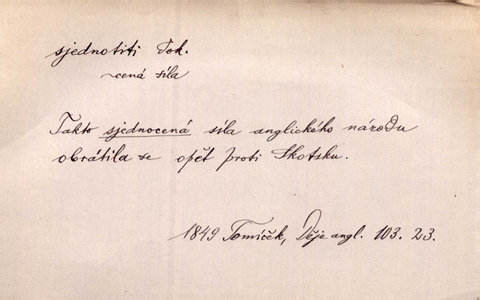 sjednotiti dok.
~cená síla
Takto sjednocená síla anglického národu
obrátila se opět proti Skotsku.
1849 Tomíček, Děje angl. 103. 23.